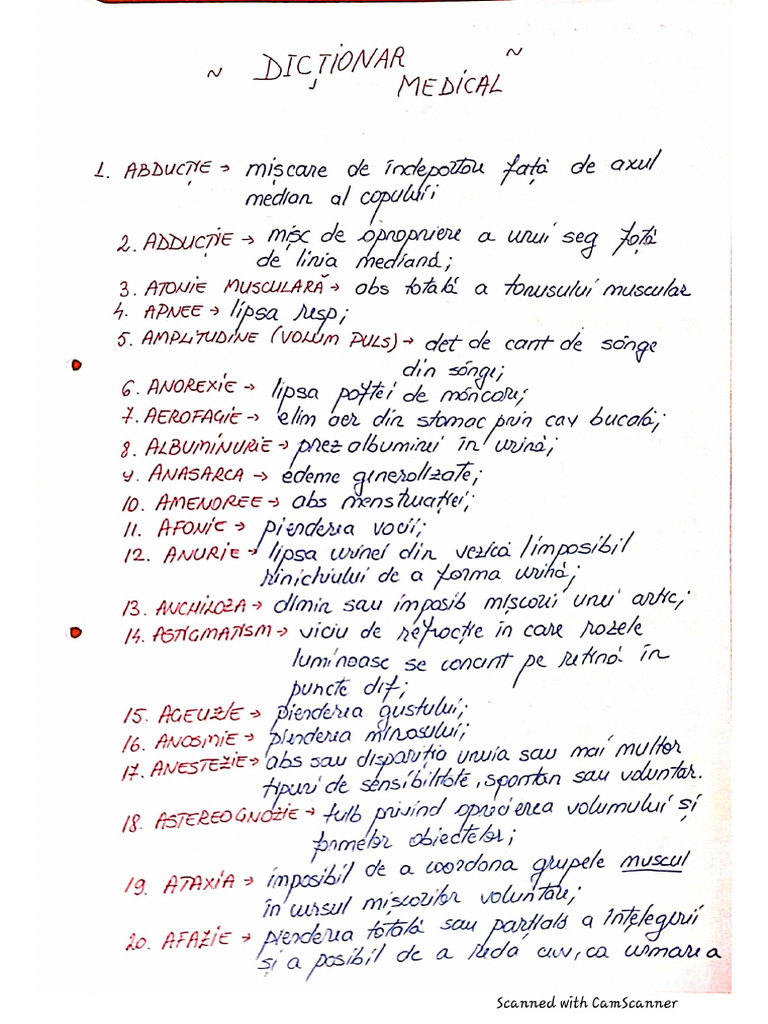 ~ DICȚIONAR ~
MEDICAL
1. ABDUCȚIE → mișcare de îndepărtare față de axul
median al copului
2. ADDUCȚIE → mișc de apropriere a unui seg față
de linia mediană;
3. ATONIE MUSCULARĂ → abs totală a tonusului muscular
4. APNEE → lipsa resp;
5. AMPLITUDINE (VOLUM PULS) → det de cant de sânge
din sânge;
6. ANOREXIE → lipsa poftei de mâncare;
7. AEROFAGIE → elim aer din stomac prin cav bucală;
8. ALBUMINURIE → prez albuminei în urină;
9. ANASARCA → edeme generalizate;
10. AMENOREE → abs menstruației;
11. AFONIE → pierderea vocii;
12. ANURIE → lipsa urinei din vezică / imposibil
rinichiului de a forma urină;
13. ANCHILOZA → dimin sau imposib mișcării unei artic;
14. ASTIGMATISM → viciu de refracție în care razele
luminoase se concent pe retină în
puncte dif;
15. AGEUZIE → pierderea gustului;
16. ANOSMIE → pierderea mirosului;
17. ANESTEZIE → abs sau dispariția unuia sau mai multor
tipuri de sensibilitate, spontan sau voluntar.
18. ASTEREOGNOZIE → tulb privind aprecierea volumului și
formelor obiectelor;
19. ATAXIA → imposibil de a coordona grupele muscul
în cursul mișcărilor voluntare;
20. AFAZIE → pierderea totală sau parțială a înțelegerii
și a posibil de a reda cuv, ca urmare a
Scanned with CamScanner